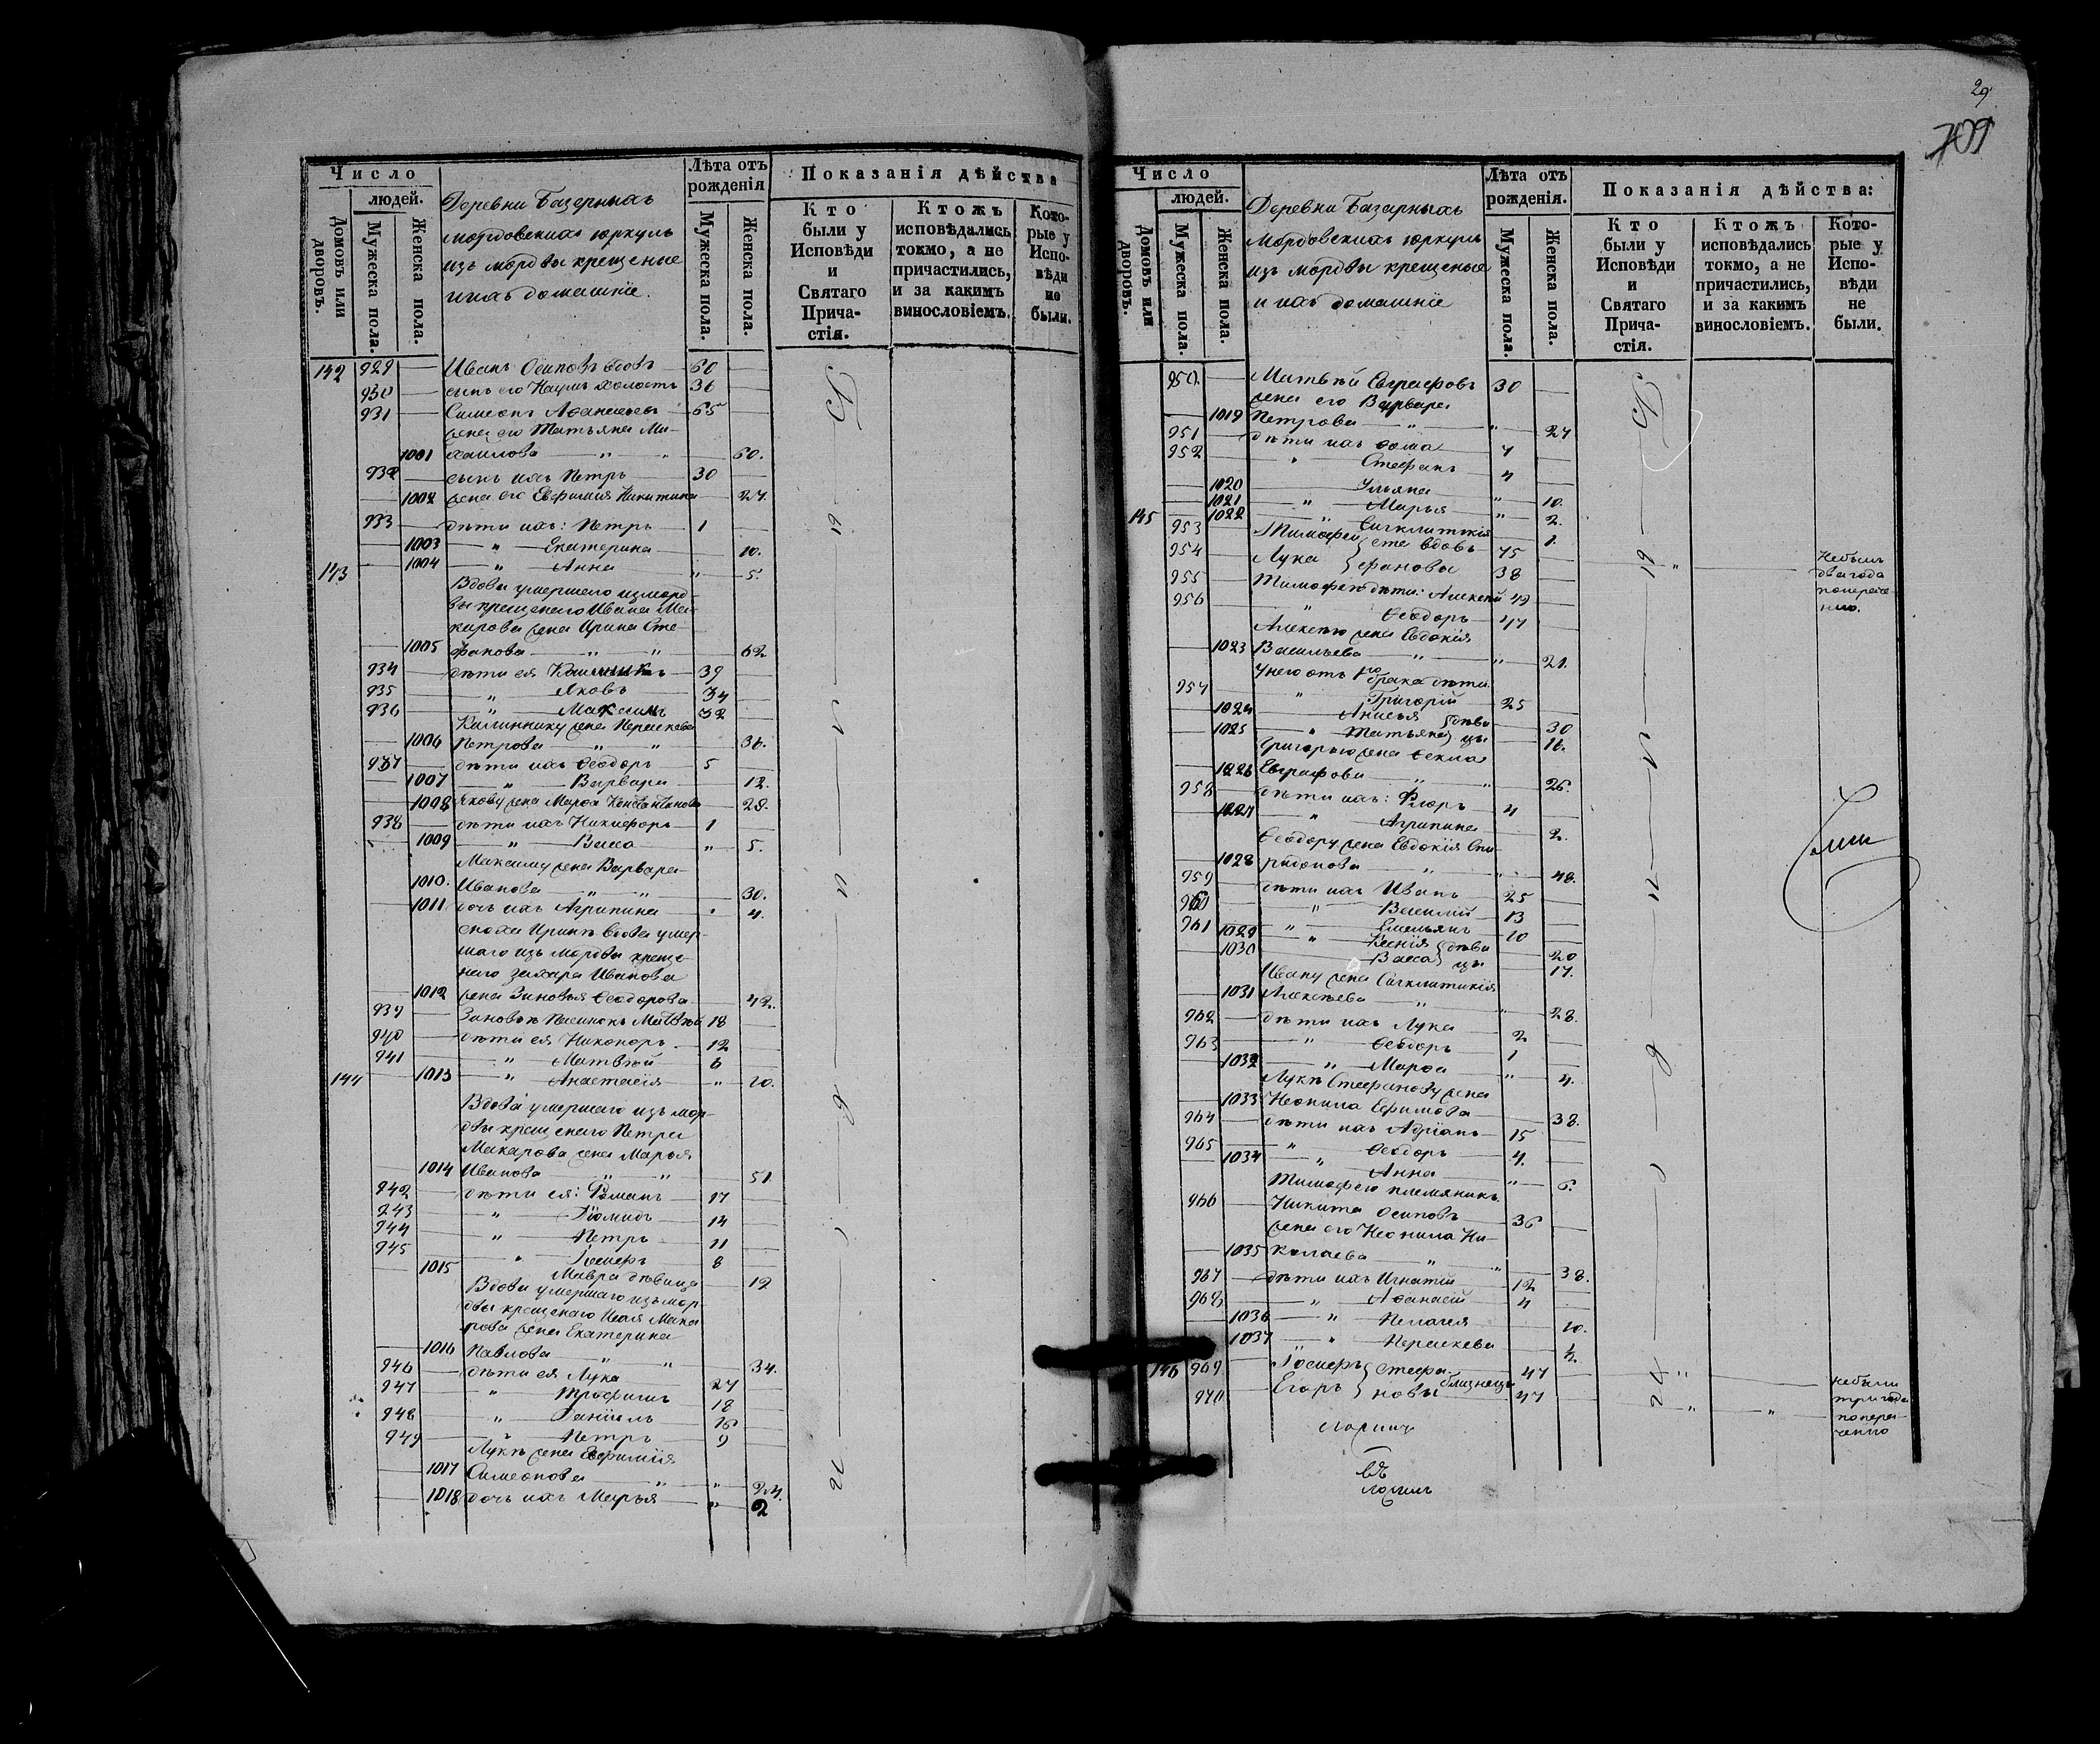 29
701
Число
людей.
Домовъ или дворовъ.
Мужеска пола.
Женска пола.
Деревни Базарныхъ
мордовскихъ юркуль
изъ мордвы крещеные
и ихъ домашніе.
Лѣта отъ рожденія
Мужеска пола.
Женска пола.
Показанія дѣйства
Кто были у Исповѣди и Святаго Прича-стія.
Ктожъ исповѣдались токмо, а не причастились, и за какимъ винословіемъ.
Кото-рые у Испо-вѣди не были.
142 929 Иванъ Осиповъ вдовъ 60
930 сынъ его Наумъ холостъ 36
931 Симеонъ Афанасьевъ 65
жена его Татьяна Ми-
1001 хаилова " " 60.
932 сынъ ихъ Петръ 30
1002 жена его Евфимия Никитина 27.
933 дѣти ихъ: Петръ 1
1003 " Екатерина 10.
1004 " Анна " 5.
143
Вдова умершаго изъ морд-
вы крещенаго Ивана Ма-
карова жена Ирина Сте-
1005 фанова " " 62
934 дѣти ея Калинникъ 39
935 " Яковъ 34
936 " Максимъ 32
Калиннику жена Параскева
1006 Петрова " " 36.
937 дѣти ихъ Ѳеодоръ 5
1007 " Варвара 12.
1008 Якову жена Марѳа Константинова 28.
938 дѣти ихъ Никифоръ 1
1009 " Васса " 5.
Максиму жена Варвара
1010. Иванова " " 30.
1011 дочь ихъ Агрипина " 4.
сноха Иринѣ вдова умер-
шаго изъ мордвы креще-
наго Захара Иванова
1012 жена Зиновья Ѳеодорова 42.
939 Зиновьѣ пасынокъ Матвѣй 18
940 дѣти ея Никоноръ 12
941 " Матвѣй 6
1013 " Анастасія " 20.
144
Вдова умершаго изъ мор-
двы крещенаго Петра
Макарова жена Марья
1014 Иванова " " 51
942 дѣти ея: Романъ 17
943 " Діомидъ 14
944 " Петръ 11
945 " Іосифъ 8
1015 Мавра дѣвица 12
Вдова умершаго изъ мор-
двы крещенаго Исая Мака
рова жена Екатерина
1016 Павлова " " 34.
946 дѣти ея Лука 27
947 " Трофимъ 18
948 " Даніилъ 16
949 " Петръ 9
Лукѣ жена Евфимія
1017 Симеонова " " 24.
1018 дочь ихъ Марья " 2
Число
людей.
Домовъ или дворовъ.
Мужеска пола.
Женска пола.
Деревни Базарныхъ
Мордовскихъ юркуль
изъ мордвы крещеные
и ихъ домашніе
Лѣта отъ рожденія.
Мужеска пола.
Женска пола.
Показанія дѣйства:
Кто были у Исповѣди и Святаго Прича-стія.
Ктожъ исповѣдались токмо, а не причастились, и за какимъ винословіемъ.
Кото-рые у Испо-вѣди не были.
950. Матвѣй Евграфовъ 30
жена его Варвара
1019 Петрова " " 27
951 дѣти ихъ Ѳома 7
952 " Стефанъ 4
1020 Ульяна " 10.
1021 " Марья " 2.
1022 " Сигклитикія 1.
145 953 Тимофей } сте вдовъ 75
954 Лука } фановы 38
955 Тимофея дѣти: Алексѣй 49
956 " Ѳеодоръ 47
Алексѣю жена Евдокія
1023 Васильева " " 21.
У него отъ 1го брака дѣти.
957 " Григорій 25
1024 Анисья } дѣви 30
1025 " Татьяна } цы 16.
Григорью жена Ѳекла
1026 Евграфова " " 26.
958 дѣти ихъ: Флоръ 4
1027 " Агрипина 2.
Ѳеодору жена Евдокія Спи-
1028 ридонова " " 48.
959 дѣти ихъ Иванъ 25
960 " Василій 13
961 " Емельянъ 10
1029 " Ксенія } дѣви 20
1030 Васса } цы 17.
Ивану жена Сигклитикія
1031 Алексѣева " " 28.
962 дѣти ихъ Лука 2
963 " Ѳеодоръ 1
1032 " Марѳа " 4.
Лукѣ Стефанову жена
1033 Неонила Ефимова 38.
964 дѣти ихъ Адріанъ 15
965 " Ѳеодоръ 4.
1034 " Анна " 6.
Тимофею племянникъ
966 Никита Осиповъ 36
жена его Неонила Ни-
1035 колаева " " 38.
967 дѣти ихъ Игнатій 12
968 " Афанасій 4
1036 " Пелагея 10.
1037 " Параскева ½.
146 969 Іосифъ } стефа близнецы 47
970 Егоръ } новы 47
небылъ
два года
поперече-
нию.
небыли
три года
попере-
чению